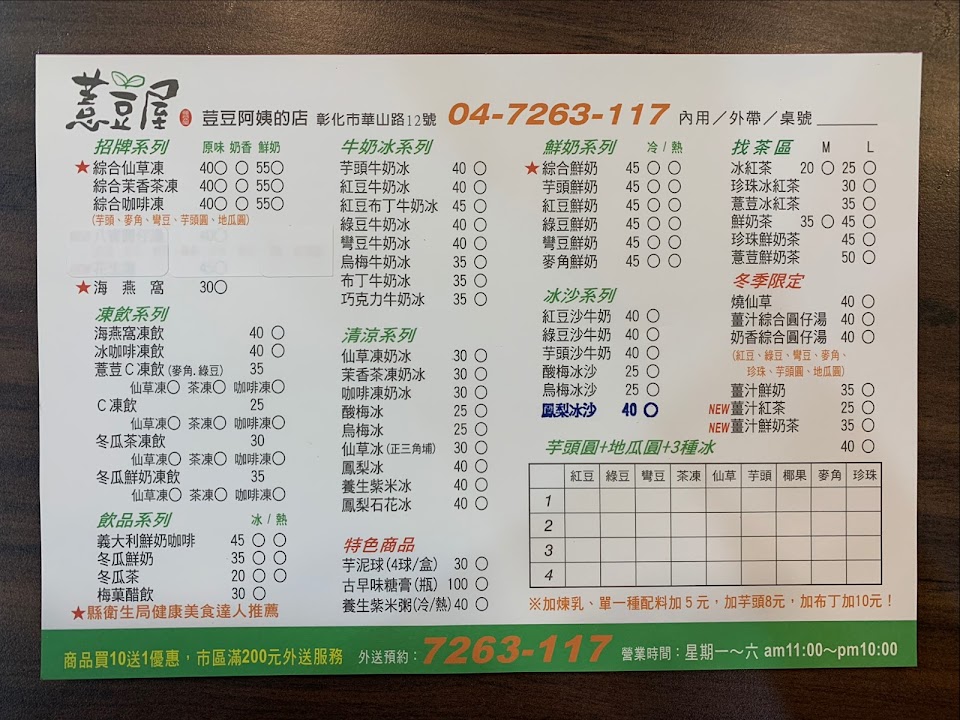 薏豆屋 荳豆阿姨的店 彰化市華山路12號 04-7263-117 內用／外帶／桌號
招牌系列 原味 奶香 鮮奶
★綜合仙草凍 40○ ○ 55○
綜合茉香茶凍 40○ ○ 55○
綜合咖啡凍 40○ ○ 55○
(芋頭、麥角、彎豆、芋頭圓、地瓜圓)
★海燕窩 30○
凍飲系列
海燕窩凍飲 40 ○
冰咖啡凍飲 40 ○
薏荳C凍飲(麥角.綠豆) 35
仙草凍○ 茶凍○ 咖啡凍○
C凍飲 25
仙草凍○ 茶凍○ 咖啡凍○
冬瓜茶凍飲 30
仙草凍○ 茶凍○ 咖啡凍○
冬瓜鮮奶凍飲 35
仙草凍○ 茶凍○ 咖啡凍○
飲品系列 冰/熱
義大利鮮奶咖啡 45 ○ ○
冬瓜鮮奶 35 ○ ○
冬瓜茶 20 ○ ○
梅菓醋飲 30 ○
★縣衛生局健康美食達人推薦
牛奶冰系列
芋頭牛奶冰 40 ○
紅豆牛奶冰 40 ○
紅豆布丁牛奶冰 45 ○
綠豆牛奶冰 40 ○
彎豆牛奶冰 40 ○
烏梅牛奶冰 35 ○
布丁牛奶冰 35 ○
巧克力牛奶冰 35 ○
清涼系列
仙草凍奶冰 30 ○
茉香茶凍奶冰 30 ○
咖啡凍奶冰 30 ○
酸梅冰 25 ○
烏梅冰 25 ○
仙草冰(正三角埔) 30 ○
鳳梨冰 40 ○
養生紫米冰 40 ○
鳳梨石花冰 40 ○
特色商品
芋泥球(4球/盒) 30 ○
古早味糖膏(瓶) 100 ○
養生紫米粥(冷/熱) 40 ○
鮮奶系列 冷/熱
★綜合鮮奶 45 ○ ○
芋頭鮮奶 45 ○ ○
紅豆鮮奶 45 ○ ○
綠豆鮮奶 45 ○ ○
彎豆鮮奶 45 ○ ○
麥角鮮奶 45 ○ ○
冰沙系列
紅豆沙牛奶 40 ○
綠豆沙牛奶 40 ○
芋頭沙牛奶 40 ○
酸梅冰沙 25 ○
烏梅冰沙 25 ○
鳳梨冰沙 40 ○
找茶區 M L
冰紅茶 20 ○ 25 ○
珍珠冰紅茶 30 ○
薏荳冰紅茶 35 ○
鮮奶茶 35 ○ 45 ○
珍珠鮮奶茶 45 ○
薏荳鮮奶茶 50 ○
冬季限定
燒仙草 40 ○
薑汁綜合圓仔湯 40 ○
奶香綜合圓仔湯 40 ○
(紅豆、綠豆、彎豆、麥角、
珍珠、芋頭圓、地瓜圓)
薑汁鮮奶 35 ○
NEW薑汁紅茶 25 ○
NEW薑汁鮮奶茶 35 ○
芋頭圓+地瓜圓+3種冰 40 ○
紅豆 綠豆 彎豆 茶凍 仙草 芋頭 椰果 麥角 珍珠
1
2
3
4
※加煉乳、單一種配料加5元，加芋頭8元，加布丁加10元！
商品買10送1優惠，市區滿200元外送服務 外送預約：7263-117 營業時間：星期一～六 am11:00～pm10:00